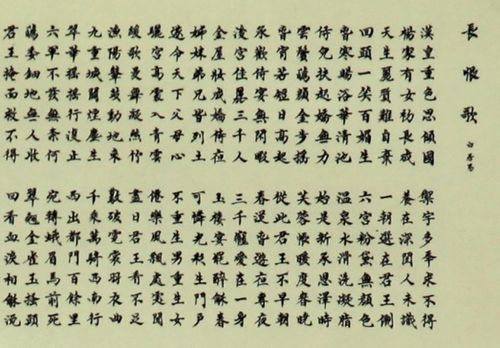 長恨歌
白居易
漢皇重色思傾國 禦宇多年求不得
楊家有女初長成 養在深閨人未識
天生麗質難自棄 一朝選在君王側
回頭一笑百媚生 六宮粉黛無顏色
春寒賜浴華清池 溫泉水滑洗凝脂
侍兒扶起嬌無力 始是新承恩澤時
雲鬢花顏金步搖 芙蓉帳暖度春宵
春宵苦短日高起 從此君王不早朝
承歡侍宴無閒暇 春從春遊夜專夜
後宮佳麗三千人 三千寵愛在一身
金屋妝成嬌侍夜 玉樓宴罷醉龢春
姊妹弟兄皆列土 可憐光彩生門戶
遂令天下父母心 不重生男重生女
驪宮高處入青雲 僊樂風飄處處聞
緩歌慢舞凝絲竹 盡日君王看不足
漁陽鼙鼓動地來 驚破霓裳羽衣曲
九重城闕煙塵生 千乘萬騎西南行
翠華搖搖行復止 西出都門百餘里
六軍不發無奈何 宛轉蛾眉馬前死
花鈿委地無人收 翠翹金雀玉搔頭
君王掩面救不得 回看血淚相龢流